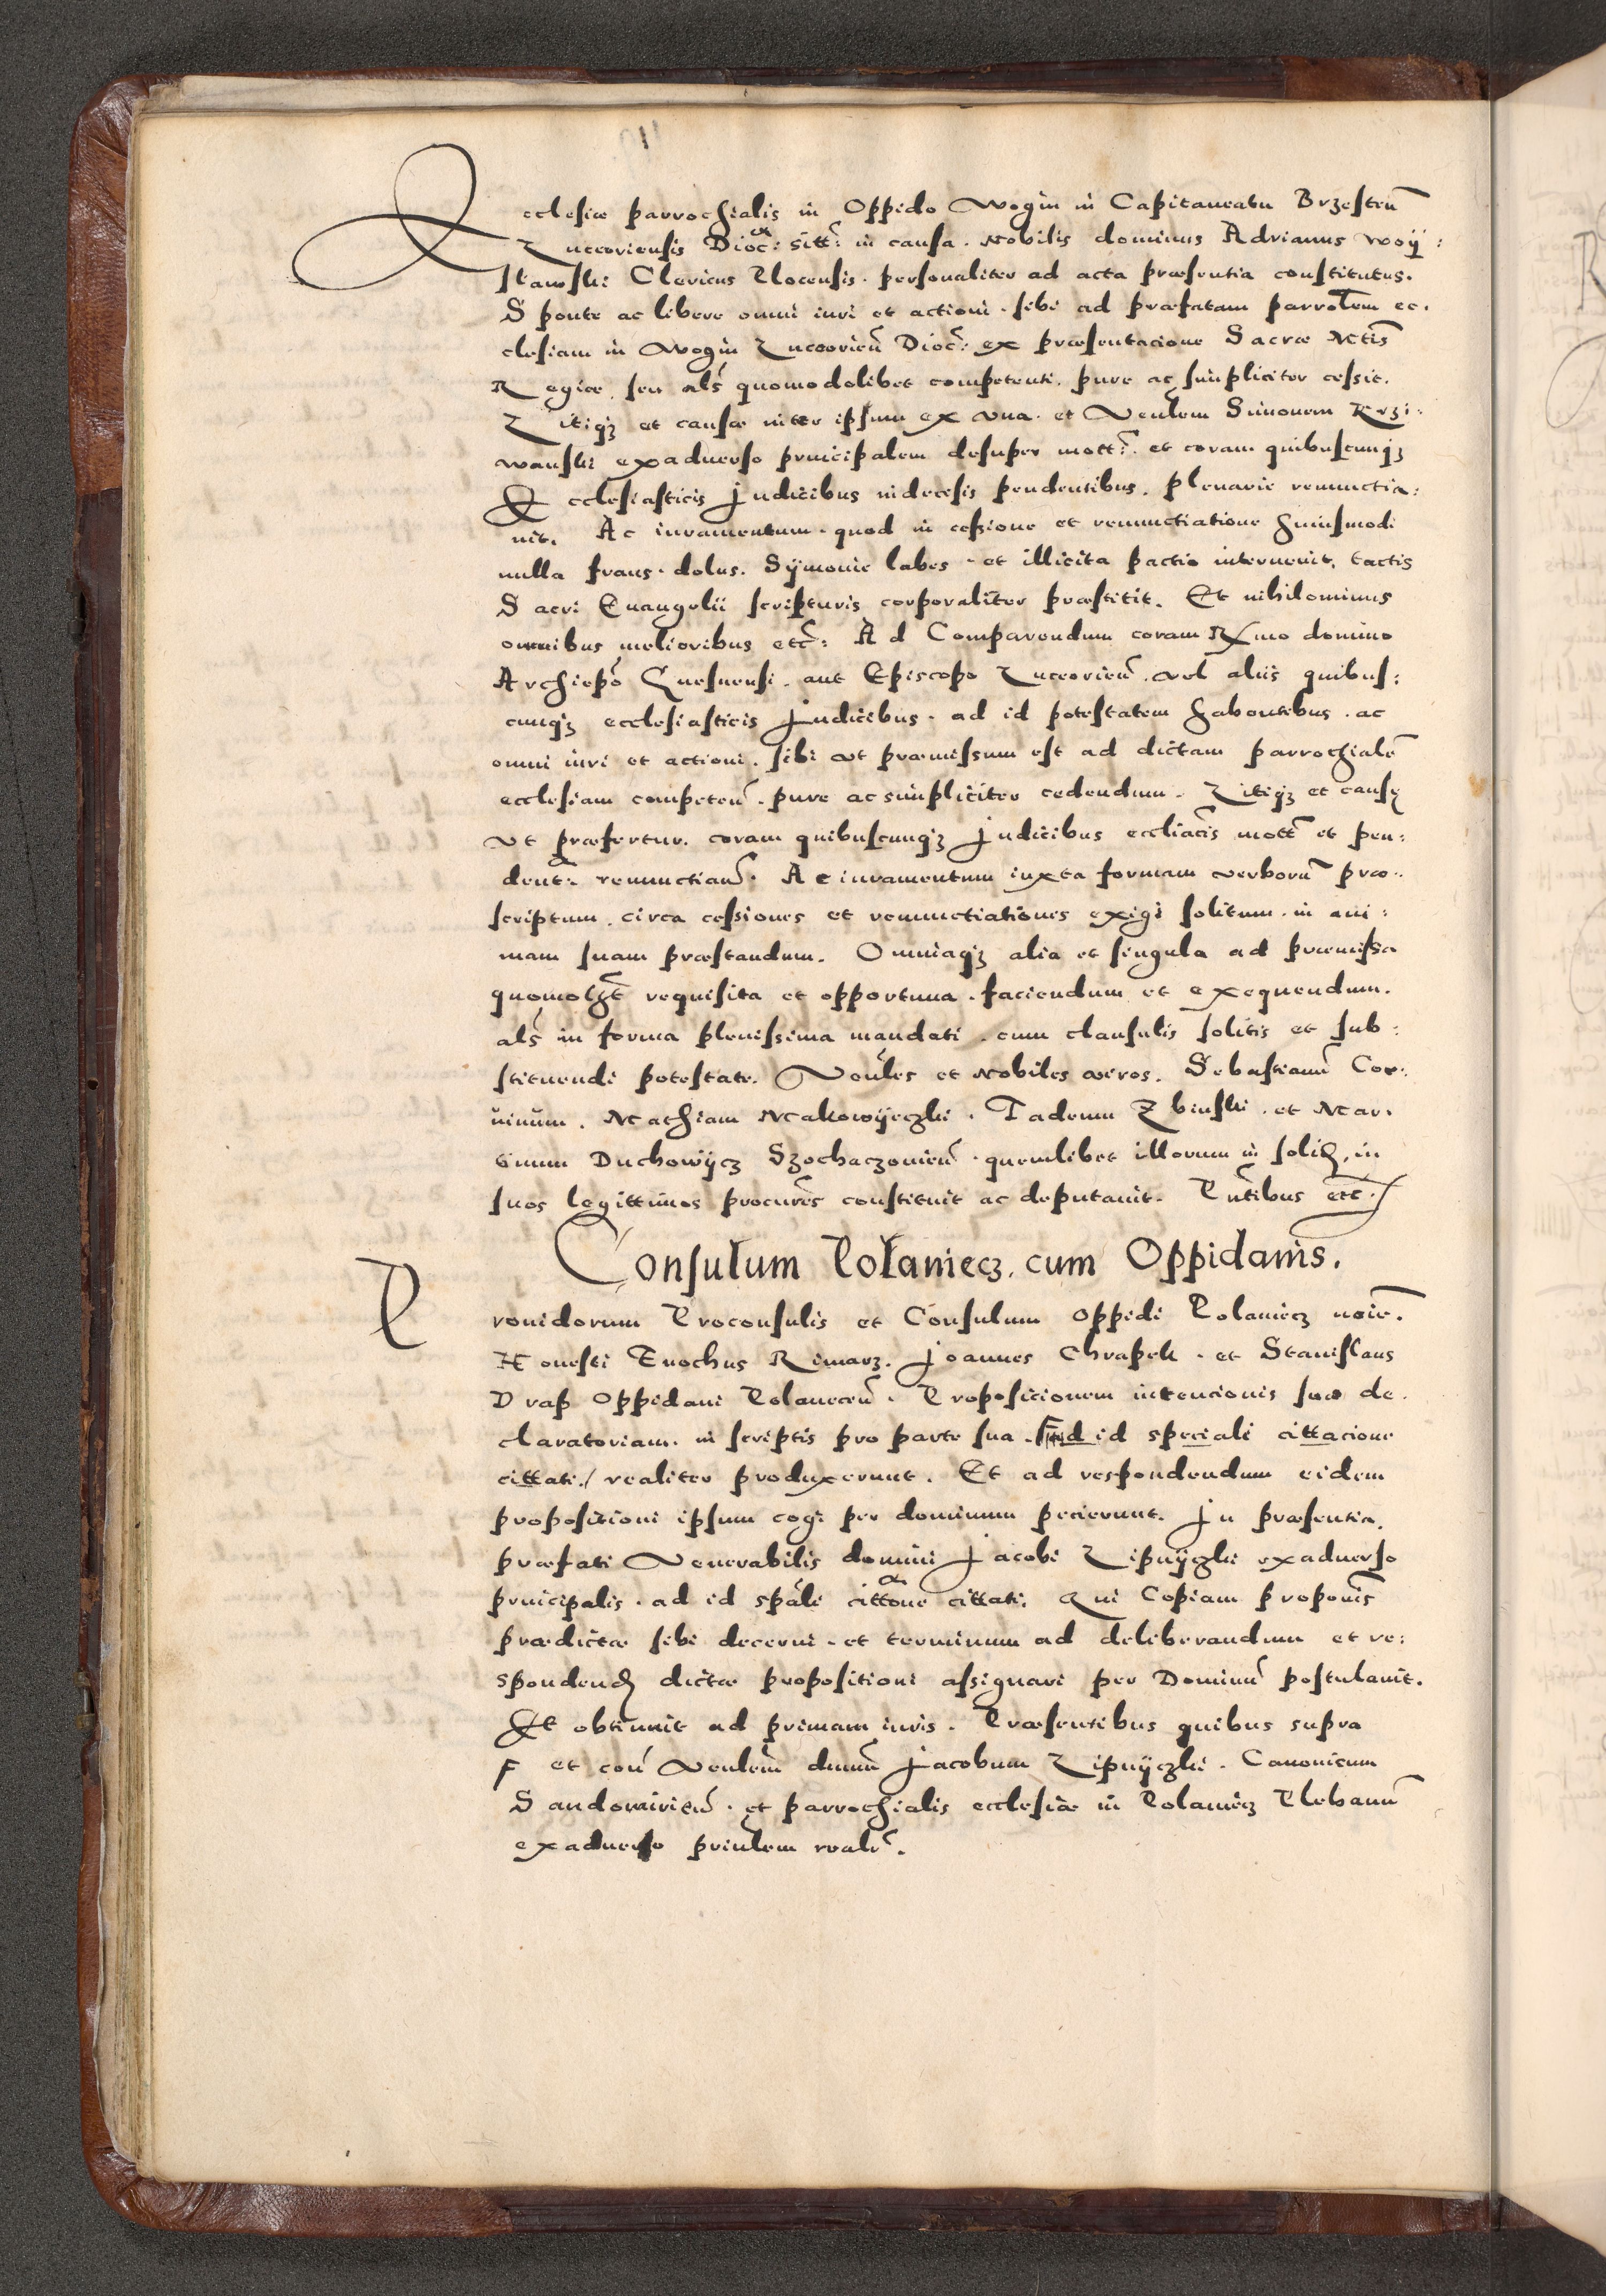 Ecclesiæ parrochialis in Oppido Wogin in Capitaneatu Brzesteñ
Luceoriensis Dioc: sitt: in causa. Nobilis dominus Adrianus Woÿ:
slawski Clericus Plocensis. personaliter ad acta præsentia constitutus.
Sponte ac libere omni iuri et actioni. sibi ad præfatam parrolem ec.
clesiam in Wogin Luceorieñ Dioc: ex præsentacione Sacræ Mtis
Regiæ. seu als quomodolibet competenti. pure ac simpliciter cessit.
Litiqz et causæ inter ipsum ex una. et Venlem Simonem Krzi:
wanski exaduerso principalem desuper mott: et coram quibuscunqz
Ecclesiasticis Judicibus indecesis pendentibus. plenarie renunctia:
uit. Ac iuramentum. quod in cessione et renunctiatione huiusmodi
nulla fraus. dolus. Sÿmonie labes. et illicita pactio interuenit, tactis
Sacri Euangelii scripturis corporaliter præstitit. Et nihilominus
omnibus melioribus etc: Ad Comparendum coram Rmo domino
Archiepo Gnesnensi. aut Episcopo Luceorieñ. vel aliis quibus:
cunqz ecclesiasticis Judicibus. ad id potestatem habentibus. ac
omni iuri et actioni. sibi ut præmissum est ad dictam parrochiale
ecclesiam competeñ. pure ac simpliciter cedendum. Litiqz et causę
ut præfertur. coram quibuscunqz Judicibus ecclia̅cis mott et pen:
dent: renunctiand. Ac iuramentum iuxta formam verborum præ:
scriptum. circa cessiones et renunctiationes exigi solitum. in ani:
mam suam præstandum. Omniaqz alia et singula ad præmissa
quomolbt requisita et opportuna. faciendum et exequendum.
als in forma plenissima mandati. cum clausulis solitis et sub:
stituendi potestate. Venles et Nobiles viros. Sebastianu Cor:
uinum. Mathiam Makowÿeczki. Tadeum Zbinski. et Mar:
tinum Duchowÿcz Szochaczouieñ. quemlibet illorum in solid, in
suos legittimos procures constituit ac deputauit. Pntibus etc.
Consulum Polaniecz. cum Oppidanis.
Prouidorum Proconsulis et Consulum Oppidi Polaniecz noie.
Honesti Enochus Rimarz. Joannes Chrapek. et Stanislaus
Drap Oppidani Polaneceñ. Proposicionem intencionis suæ de.
claratoriam. in scriptis pro parte sua. F ad id speciali cittacione
cittati./ realiter produxerunt. Et ad respondendum eidem
propositioni ipsum cogi per dominum pecierunt. In præsentia.
præfati Venerabilis domini Jacobi Lipnÿczki exaduerso
principalis. ad id spali cittone cittati. Qui Copiam proponis
prædictæ sibi decerni. et terminum ad deliberandum et re:
spondend dictæ propositioni assignari per Dominu postulauit.
Et obtinuit ad primam iuris. Præsentibus quibus supra
F et con Venlem dnum Jacobum Lipnÿczki. Canonicum
Sandomirieñ. et parrochialis ecclesiæ in Polaniecz Plebanu
exaduerso princlem realr.